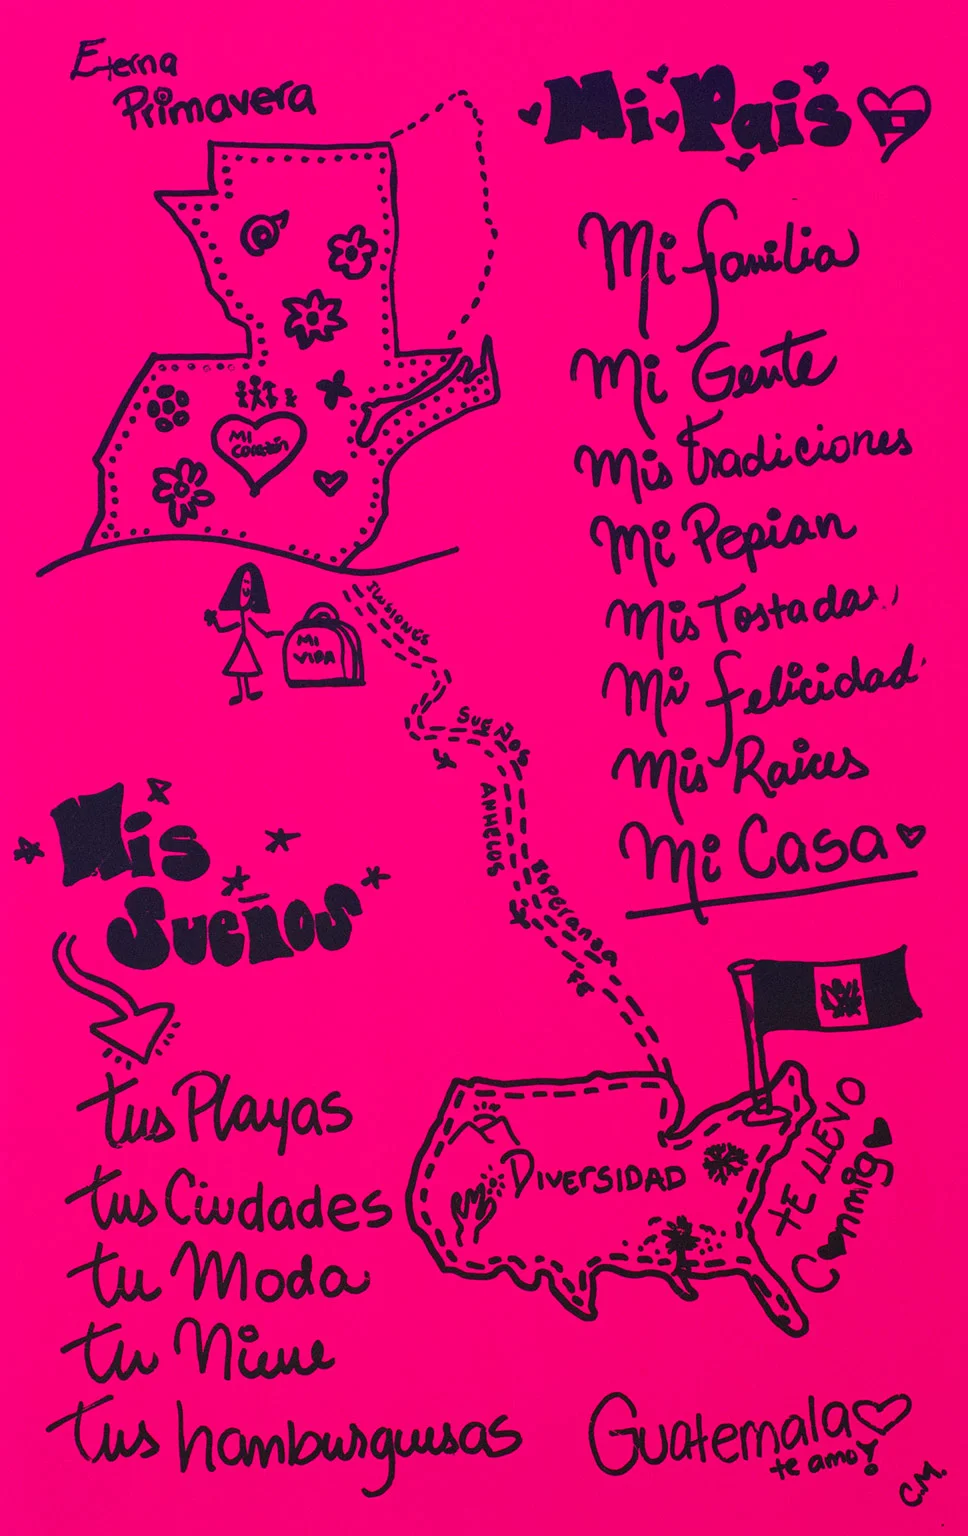 Eterna
Primavera
Mi Pais
Mi familia
Mi Gente
Mis tradiciones
Mi Pepian
Mis Tostadas
Mi felicidad
Mis Raices
Mi Casa
Mi
Corazón
Mi
Vida
Ilusiones
Sueños
Anhelos
Esperanza
Fe
Mis
Sueños
tus Playas
tus Ciudades
tu Moda
tu Nieve
tus hamburguesas
Diversidad
te llevo
Conmigo
Guatemala
te amo!
C.M.